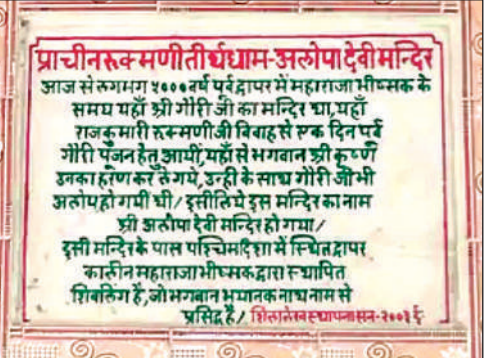 प्राचीन रुक्मणी तीर्थधाम-अलोपा देवी मन्दिर
आज से लगभग ५००० वर्ष पूर्व द्वापर में महाराजा भीष्मक के
समय यहाँ श्री गौरी जी का मन्दिर था, यहाँ
राजकुमारी रुक्मणी जी विवाह से एक दिन पूर्व
गौरी पूजन हेतु आयीं, यहाँ से भगवान श्री कृष्ण
उनका हरण कर ले गये, उन्ही के साथ गौरी जी भी
अलोप हो गयीं थी/ इसीलिये इस मन्दिर का नाम
श्री अलोपा देवी मन्दिर हो गया/
इसी मन्दिर के पास पश्चिम दिशा में स्थित द्वापर
कालीन महाराजा भीष्मक द्वारा स्थापित
शिवलिंग है, जो भगवान भयानक नाथ नाम से
प्रसिद्ध है/ शिलालेख स्थापना सन-२००३ ई॰